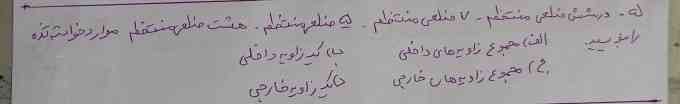 ۵- در شش ضلعی منتظم - ۷ ضلعی منتظم - ۵ ضلعی منتظم - هشت ضلعی منتظم موارد خواسته شده
را بنویسید الف) مجموع زاویه های داخلی ب) یک زاویه داخلی
ج) مجموع زاویه های خارجی د) یک زاویه خارجی